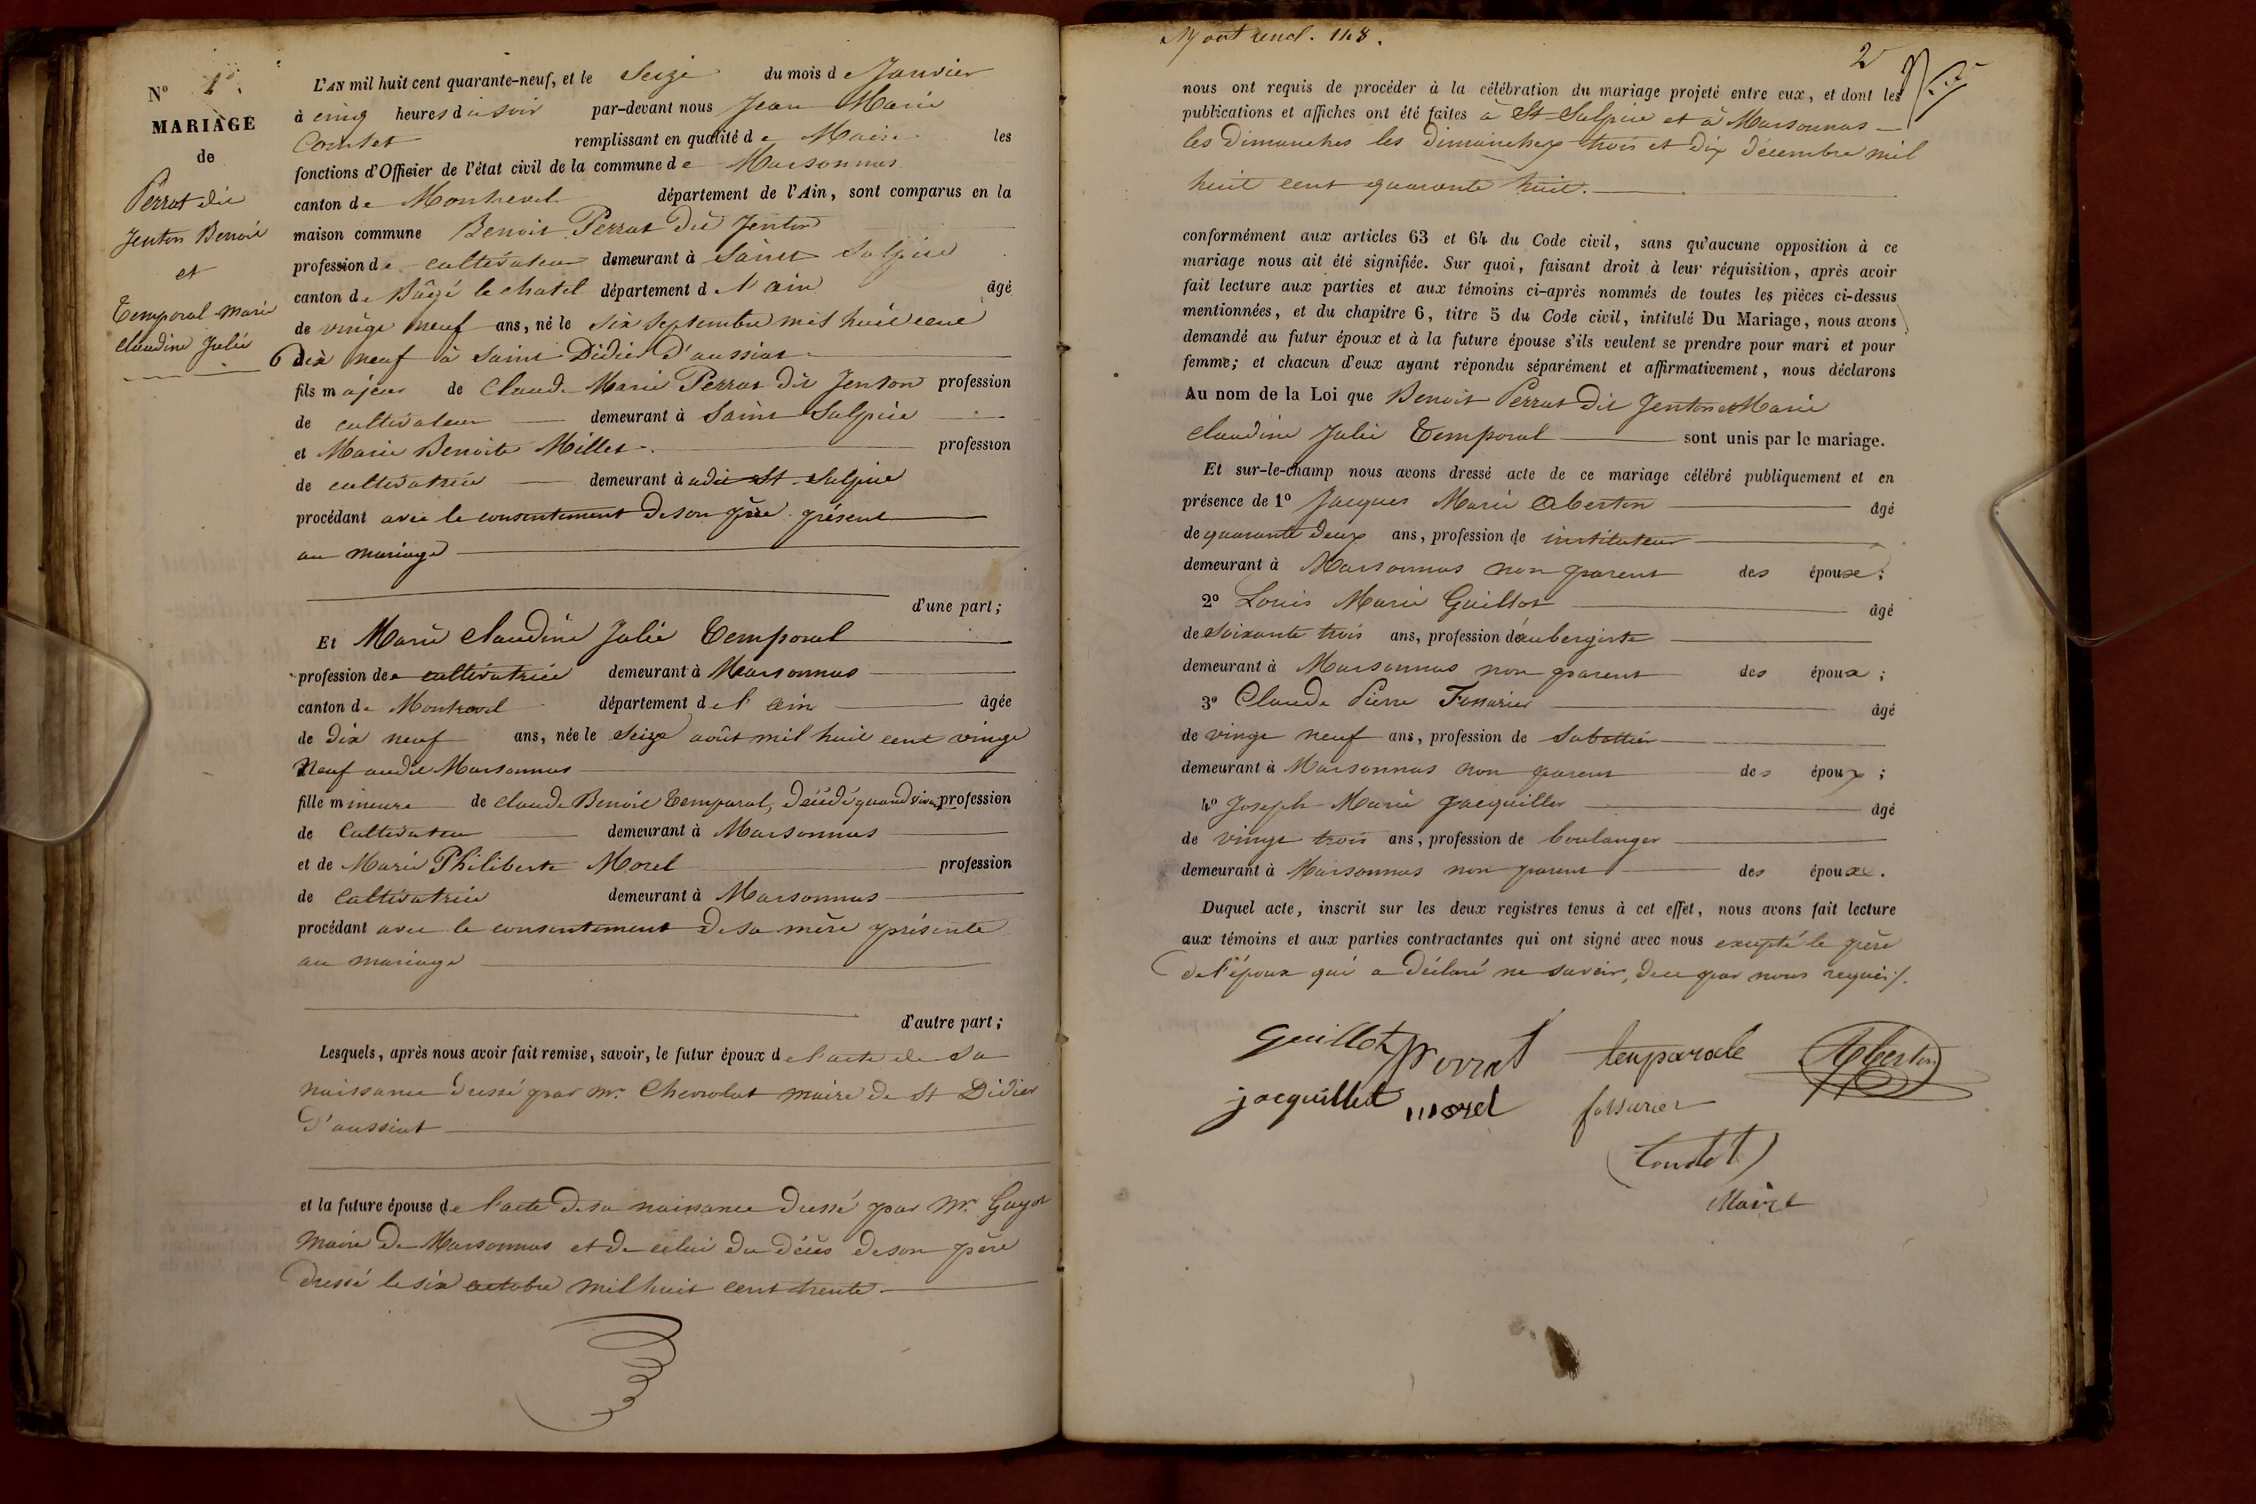 N° 1°.
MARIAGE
de
Perrat dit
Jenton Benoit
et
Temporal Marie
claudine Julie
L'AN mil huit cent quarante-neuf, et le Seize du mois de Janvier
à cinq heures du soir par-devant nous Jean Marie
Contet remplissant en qualité de Maire les
fonctions d'Officier de l'état civil de la commune de Marsonnas
canton de Montrevel département de l'Ain, sont comparus en la
maison commune Benoit Perrat dit Jenton
profession de cultivateur demeurant à Saint Sulpice
canton de Bâgé le chatel département de l'ain âgé
de vingt neuf ans, né le six septembre mil huit cent
dix neuf à Saint Didier D'aussiat
fils majeur de Claude Marie Perrat dit Jenton profession
de cultivateur demeurant à Saint Sulpice
et Marie Benoite Millet profession
de cultivatrice demeurant à audit St Sulpice
procédant avec le consentement de son père présent
au mariage
d'une part;
Et Marie Claudine Julie Temporal
profession de cultivatrice demeurant à Marsonnas
canton de Montrevel département de l'ain âgée
de dix neuf ans, née le seize août mil huit cent vingt
Neuf audit Marsonnas
fille mineure de claude Benoit Temporal, décédé quand vivait profession
de Cultivateur demeurant à Marsonnas
et de Marie Philiberte Morel profession
de Cultivatrice demeurant à Marsonnas
procédant avec le consentement de sa mère présente
au mariage
d'autre part;
Lesquels, après nous avoir fait remise, savoir, le futur époux de l'acte de sa
naissance dressé par Mr. Chevrolat maire de St Didier
D'aussiat
et la future épouse de l'acte de sa naissance dressé par Mr. Guyot
Maire de Marsonnas et de celui du décès de son père
dressé le six octobre mil huit cent trente
2
nous ont requis de procéder à la célébration du mariage projeté entre eux, et dont les
publications et affiches ont été faites à St Sulpice et à Marsonnas
les Dimanches les dimanches trois et dix décembre mil
huit cent quarante huit.
conformément aux articles 63 et 64 du Code civil, sans qu'aucune opposition à ce
mariage nous ait été signifiée. Sur quoi, faisant droit à leur réquisition, après avoir
fait lecture aux parties et aux témoins ci-après nommés de toutes les pièces ci-dessus
mentionnées, et du chapitre 6, titre 5 du Code civil, intitulé Du Mariage, nous avons
demandé au futur époux et à la future épouse s'ils veulent se prendre pour mari et pour
femme; et chacun d'eux ayant répondu séparément et affirmativement, nous déclarons
Au nom de la Loi que Benoit Perrat dit Jenton et Marie
claudine Julie Temporal sont unis par le mariage.
Et sur-le-champ nous avons dressé acte de ce mariage célébré publiquement et en
présence de 1° Jacques Marie Aberton âgé
de quarante deux ans, profession de instituteur
demeurant à Marsonnas non parent des époux;
2° Louis Marie Guillot âgé
de soixante trois ans, profession d'aubergiste
demeurant à Marsonnas non parent des époux;
3° Claude Pierre Fossurier âgé
de vingt neuf ans, profession de sabottier
demeurant à Marsonnas non parent des époux;
4° Joseph Marie Jacquillet âgé
de vingt trois ans, profession de boulanger
demeurant à Marsonnas non parent des époux.
Duquel acte, inscrit sur les deux registres tenus à cet effet, nous avons fait lecture
aux témoins et aux parties contractantes qui ont signé avec nous excepté le père
de l'époux qui a déclaré ne savoir, de ce par nous requis.
Guillot Perrat temporale Aberton
jacquillet morel fossurier
Contet
Maire